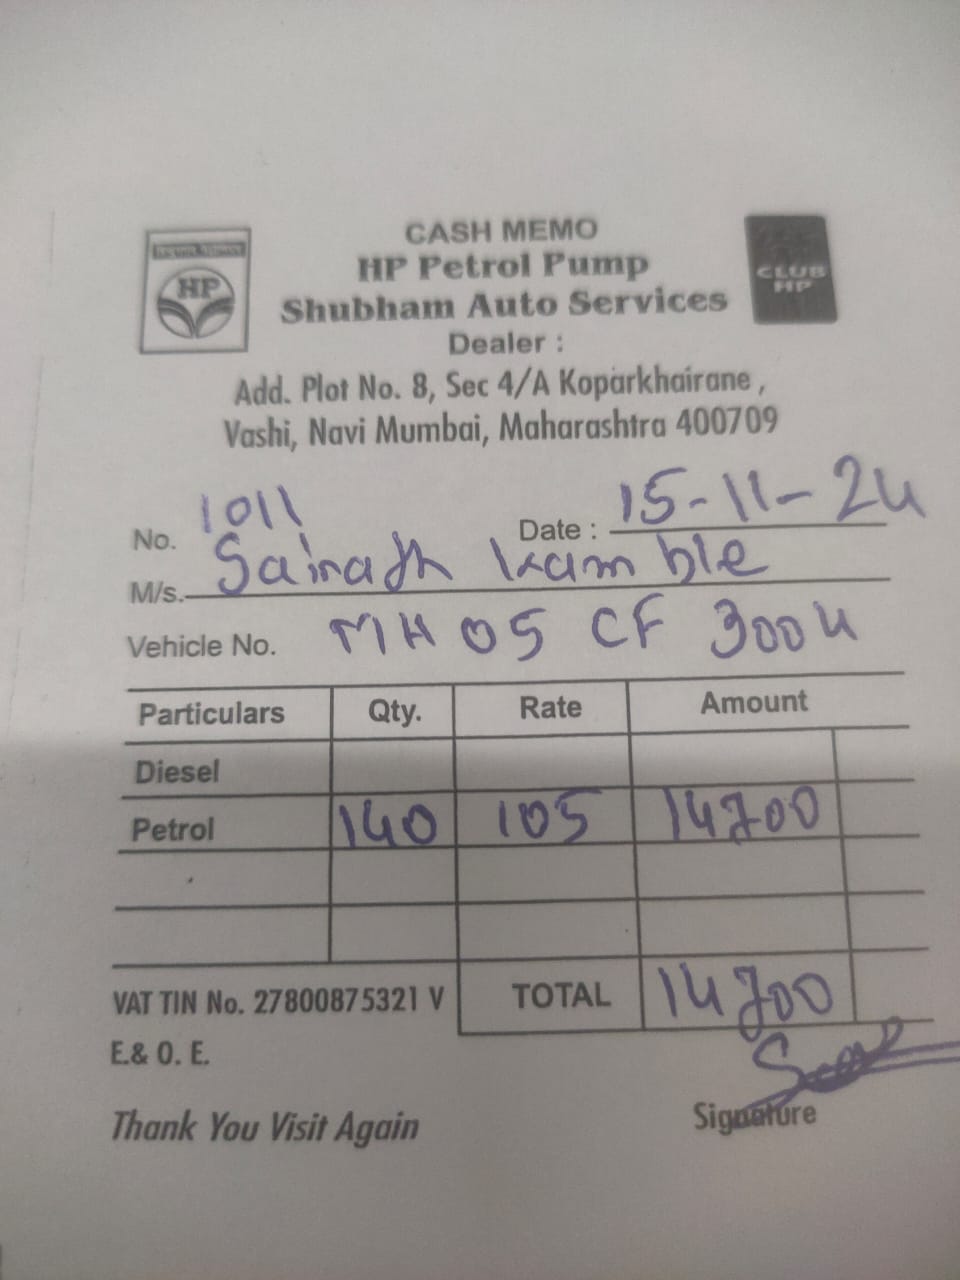 CASH MEMO
HP Petrol Pump
Shubham Auto Services
HP
CLUB
HP
Dealer :
Add. Plot No. 8, Sec 4/A Koparkhairane,
Vashi, Navi Mumbai, Maharashtra 400709
No. 1011 Date : 15-11-24
M/s. Sainath Kamble
Vehicle No. MH 05 CF 3004
Particulars Qty. Rate Amount
Diesel
Petrol 140 105 14700
VAT TIN No. 27800875321 V TOTAL 14700
E.& O. E.
Thank You Visit Again Signature